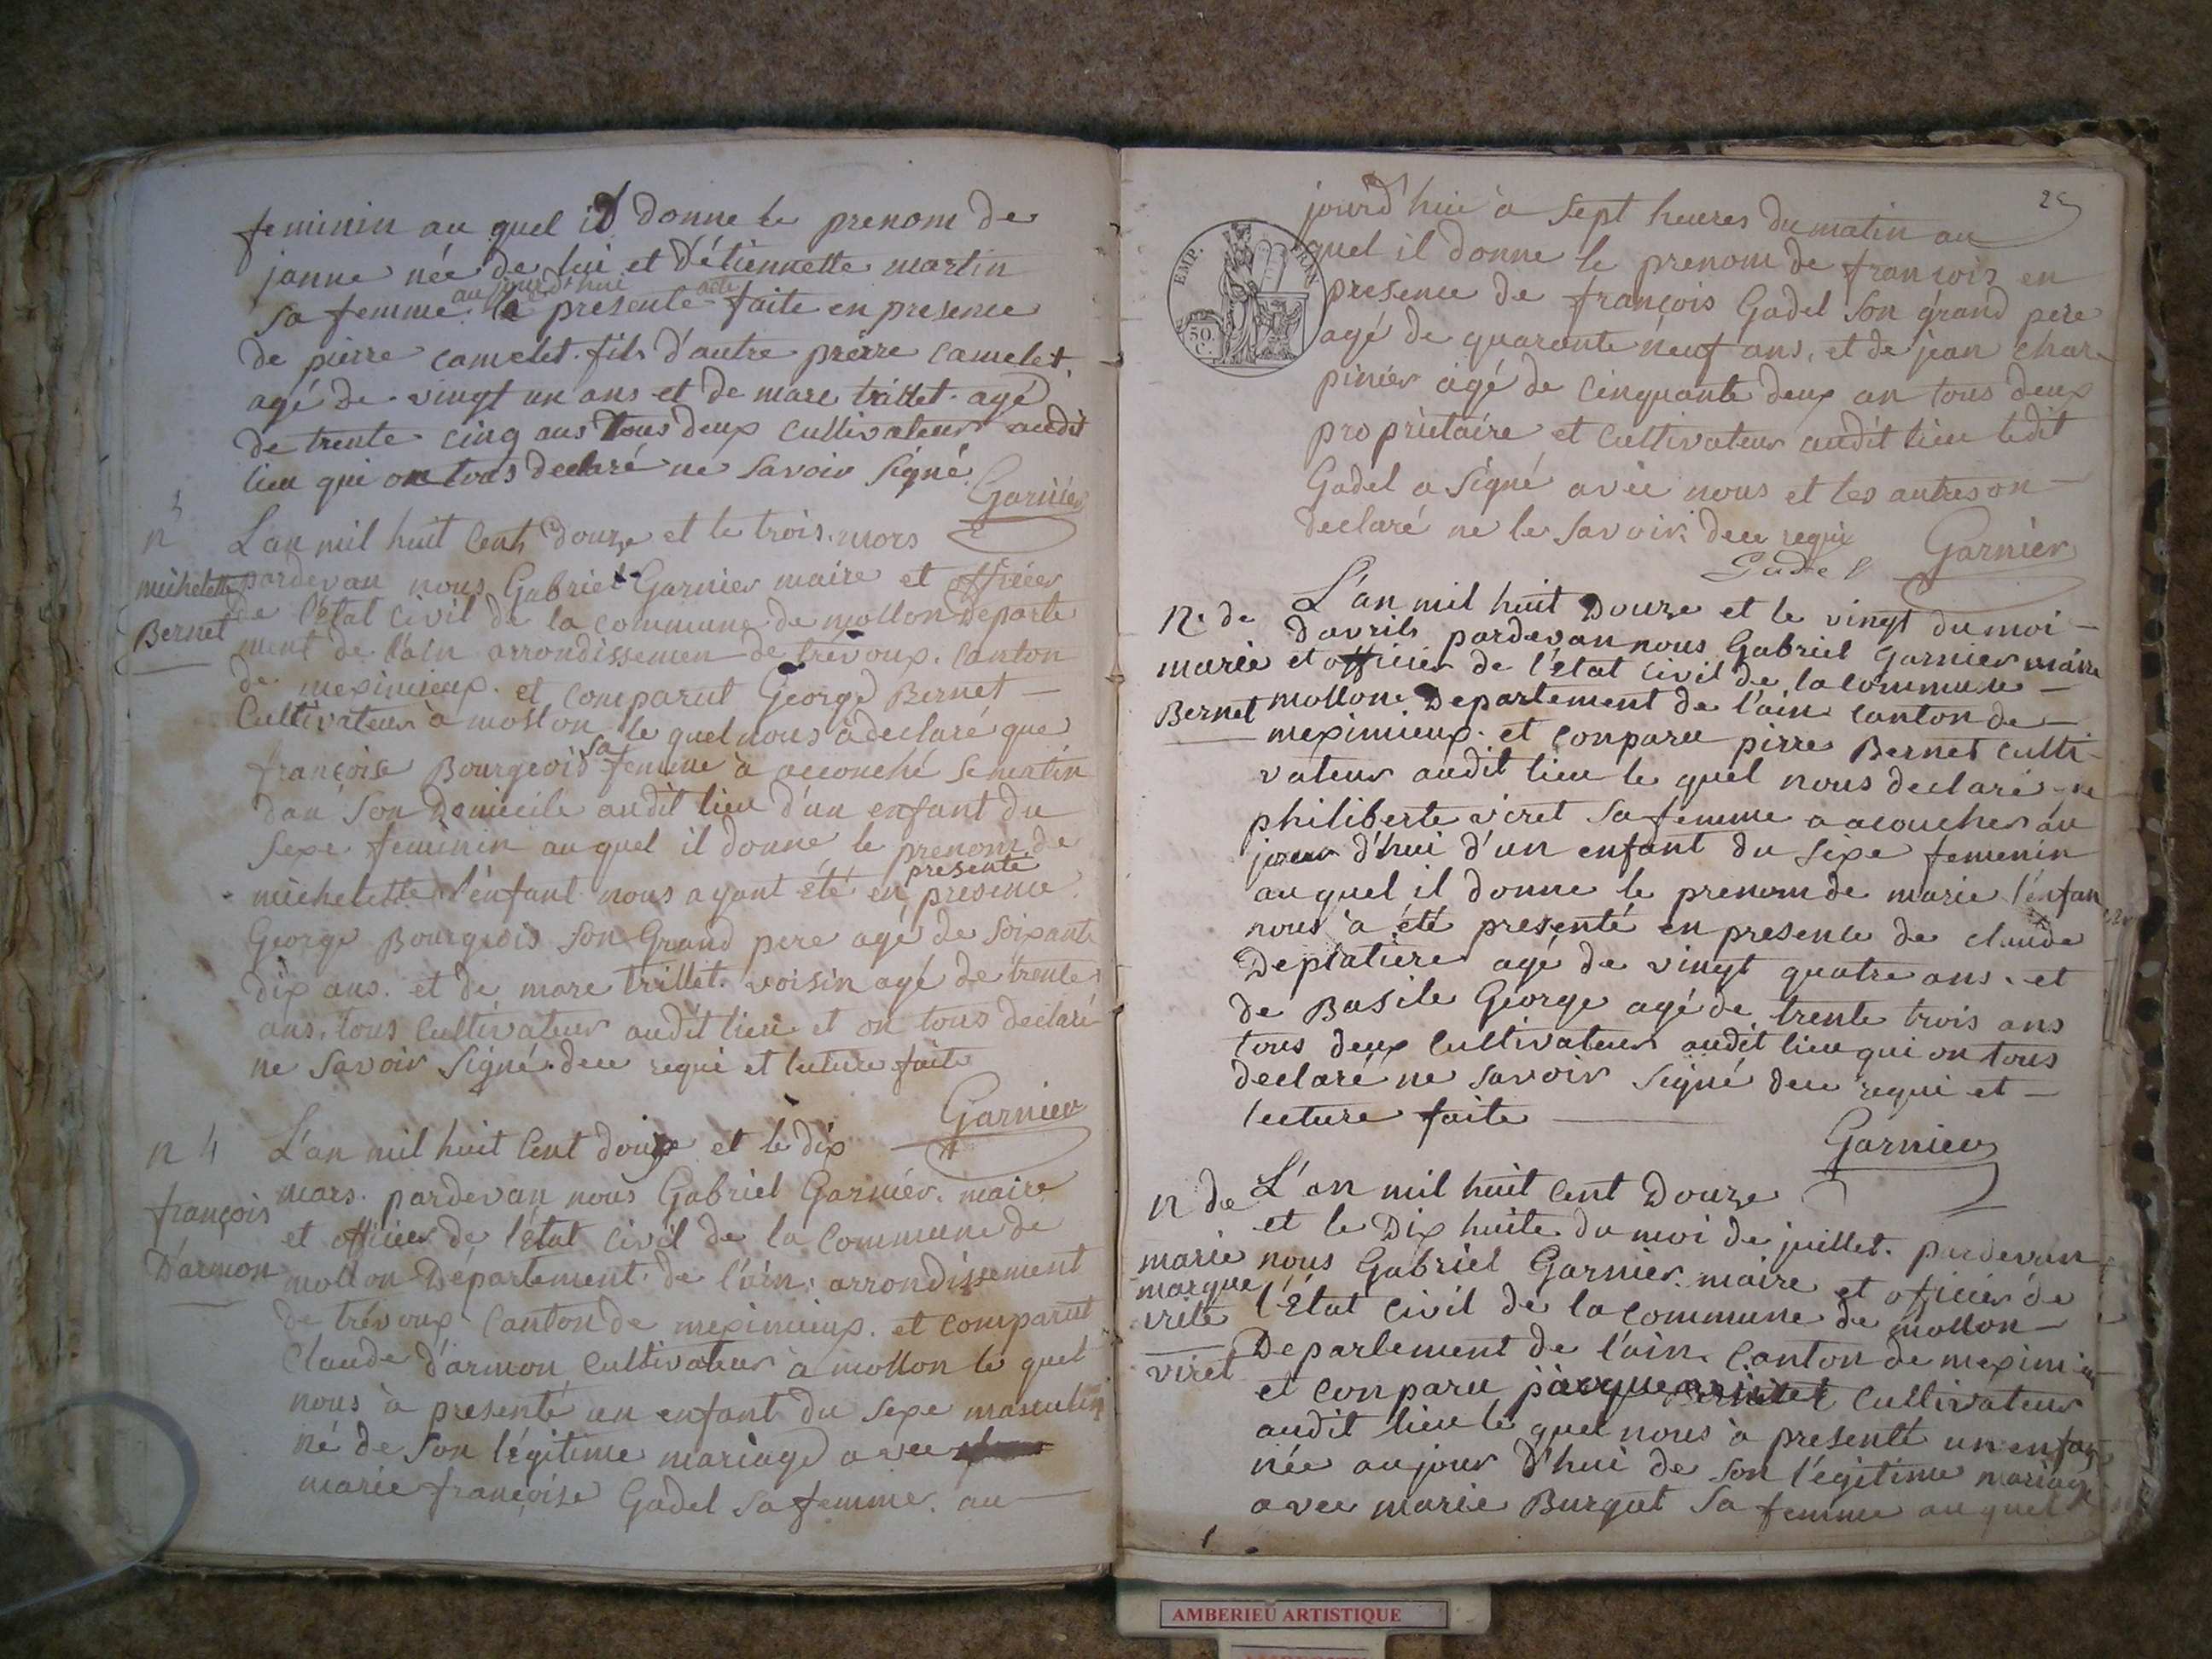 feminin au quel il donne le prenom de
janne née de lui et d'étiennette martin
aujourd'hui acte
sa femme. la presente faite en presence
de pierre camelet. fils d'autre pierre camelet
agé de vingt un ans et de marc trillet. agé
de trente cinq ans tous deux cultivateur audit
lieu qui on tous declaré ne savoir signé
Garnier
n 3
L'an mil huit cent douze et le trois. mars
michelette
pardevan nous Gabriel Garnier maire et officier
Bernet
de l'état civil de la commune de mollon Departe
ment de l'ain arrondissemen de trévoux. canton
de meximieux. et comparut George Bernet
Cultivateur à mollon le quel nous à declaré que
françoise Bourgeois sa femme à accouché se matin
dan son domicile audit lieu d'un enfant du
sexe feminin au quel il donne le prenom de
presenté
michelette l'enfant nous ayant été en presence
George Bourgeois son Grand pere agé de soixante
dix ans. et de marc trillet. voisin agé de trente
ans, tous cultivateur audit lieu et on tous declaré
ne savoir signé. deu requi et luture faite
Garnier
n 4
L'an mil huit cent douze et le dix
françois
mars. pardevan nous Gabriel Garnier. maire
et officier de l'état civil de la commune de
D'armon
mollon Département. de l'ain. arrondissement
de trévoux canton de meximieux. et comparut
Claude d'armon cultivateur à mollon le quel
nous à presenté un enfant du sexe masculin
né de son légitime mariage avec
marie françoise Gadel sa femme. au
25
EMP. FRAN
50 C.
jourd'hui à sept heures du matin au
quel il donne le prenom de françois en
presence de françois Gadel son grand pere
agé de quarante neuf ans, et de jean char
pinier agé de cinquante deux an tous deux
propriétaire et cultivateur audit lieu ledit
Gadel a signé avec nous et les autres on
declaré ne le savoir. deu requi
Gadel Garnier
N. de
L'an mil huit Douze et le vingt du moi
d'avrils pardevan nous Gabriel Garnier maire
marie
et officier de l'état civil de la commune
Bernet
mollon. Departement de l'ain canton de
meximieux. et conparu pirre Bernet culti
vateur audit lieu le quel nous declaré que
philiberte viret sa femme a acoucher au
jour d'hui d'un enfant du sexe femenin
au quel il donne le prenom de marie l'enfan
nous à été presenté en presence de claude
Deplatiere agé de vingt quatre ans. et
de Basile George agé de trente trois ans
tous deux cultivateur audit lieu qui on tous
declaré ne savoir signé deu requi et
lecture faite
Garnier
n de
L'an mil huit cent Douze
et le Dix huite du moi de juillet. pardevan
marie
nous Gabriel Garnier. maire et officier de
margue
l'état civil de la commune de mollon
rite
Departement de l'ain. canton de meximieux
viret
et conparu cultivateur
audit lieu le quel nous à presenté un enfan
née aujour d'hui de son légitime mariage
avec marie Burgut sa femme au quel
AMBERIEU ARTISTIQUE